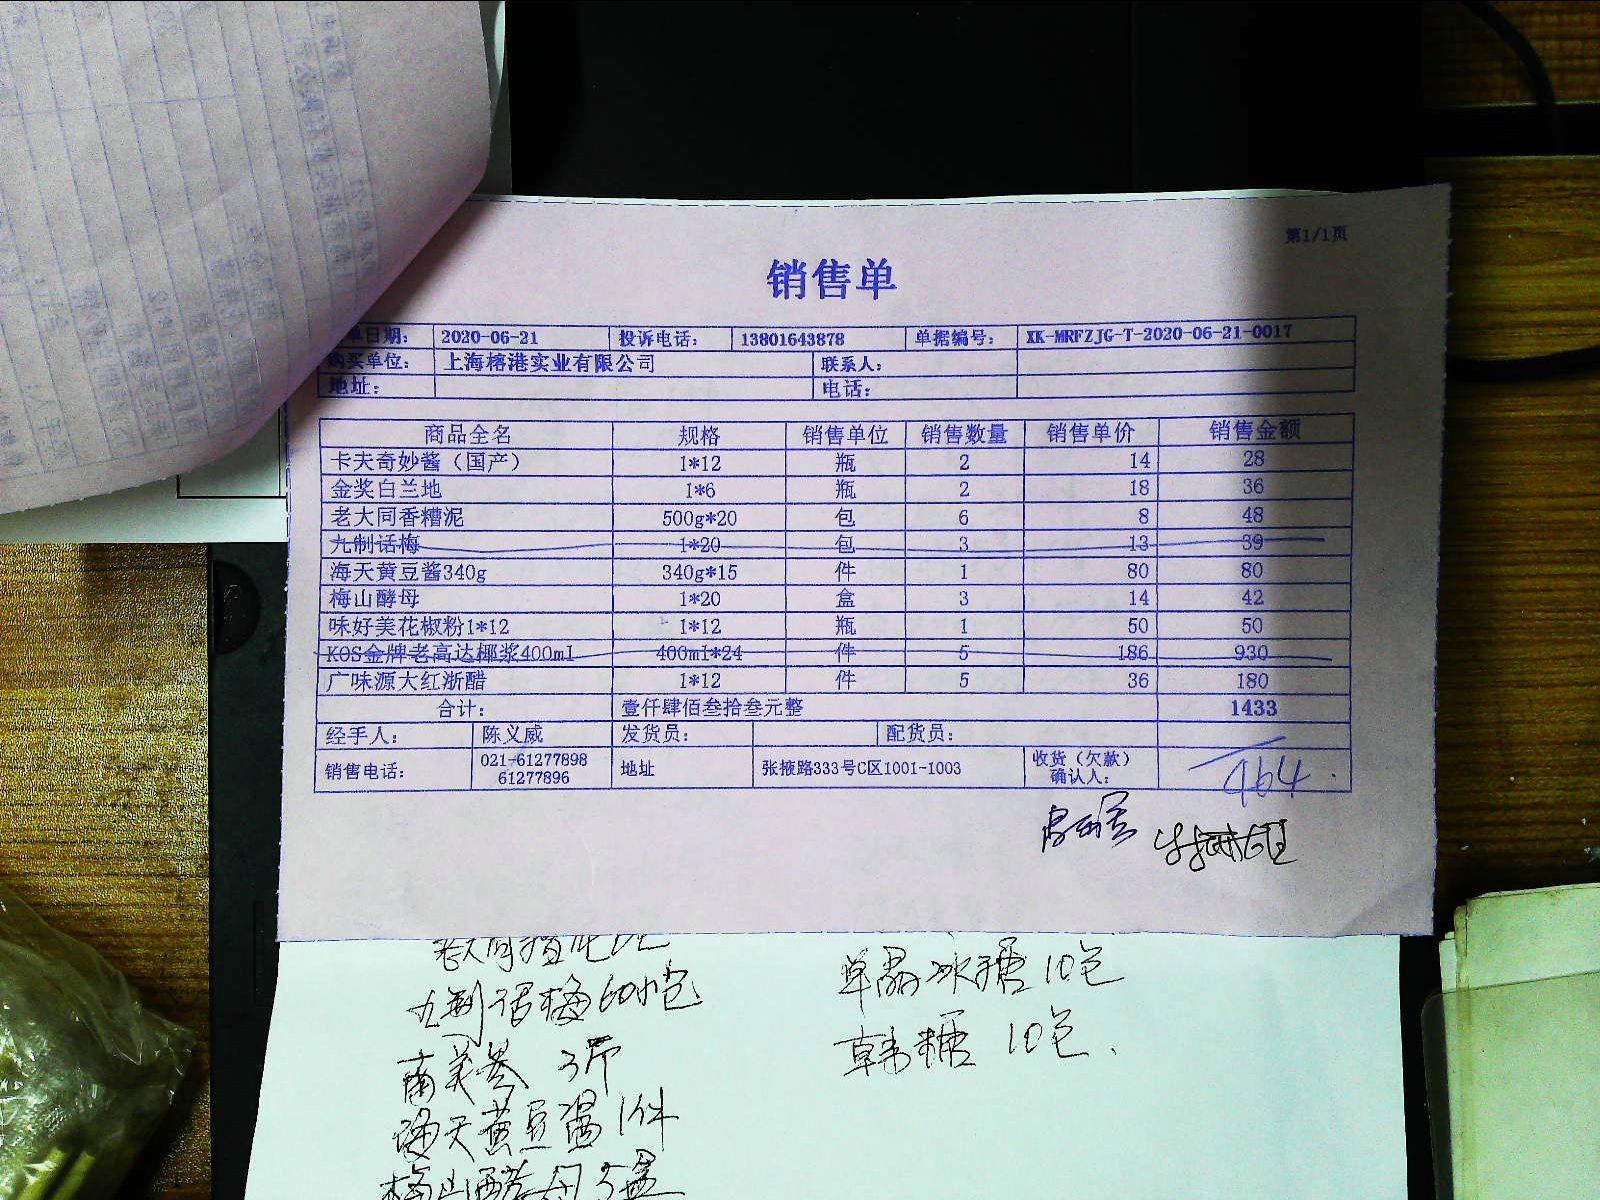 第1/1页
销售单
单日期： 2020-06-21 投诉电话： 13801643878 单据编号： XK-MRFZJG-T-2020-06-21-0017
购买单位： 上海榕港实业有限公司 联系人：
地址： 电话：
商品全名 规格 销售单位 销售数量 销售单价 销售金额
卡夫奇妙酱（国产） 1*12 瓶 2 14 28
金奖白兰地 1*6 瓶 2 18 36
老大同香糟泥 500g*20 包 6 8 48
九制话梅 1*20 包 3 13 39
海天黄豆酱340g 340g*15 件 1 80 80
梅山酵母 1*20 盒 3 14 42
味好美花椒粉1*12 1*12 瓶 1 50 50
KOS金牌老高达椰浆400ml 400ml*24 件 5 186 930
广味源大红浙醋 1*12 件 5 36 180
合计： 壹仟肆佰叁拾叁元整 1433
经手人： 陈义威 发货员： 配货员：
销售电话： 021-61277898 61277896 地址 张掖路333号C区1001-1003 收货（欠款）确认人： 464
九制话梅60小包 单晶冰糖10包
南美参 3斤 韩糖 10包
海天黄豆酱1件
梅山酵母3盒